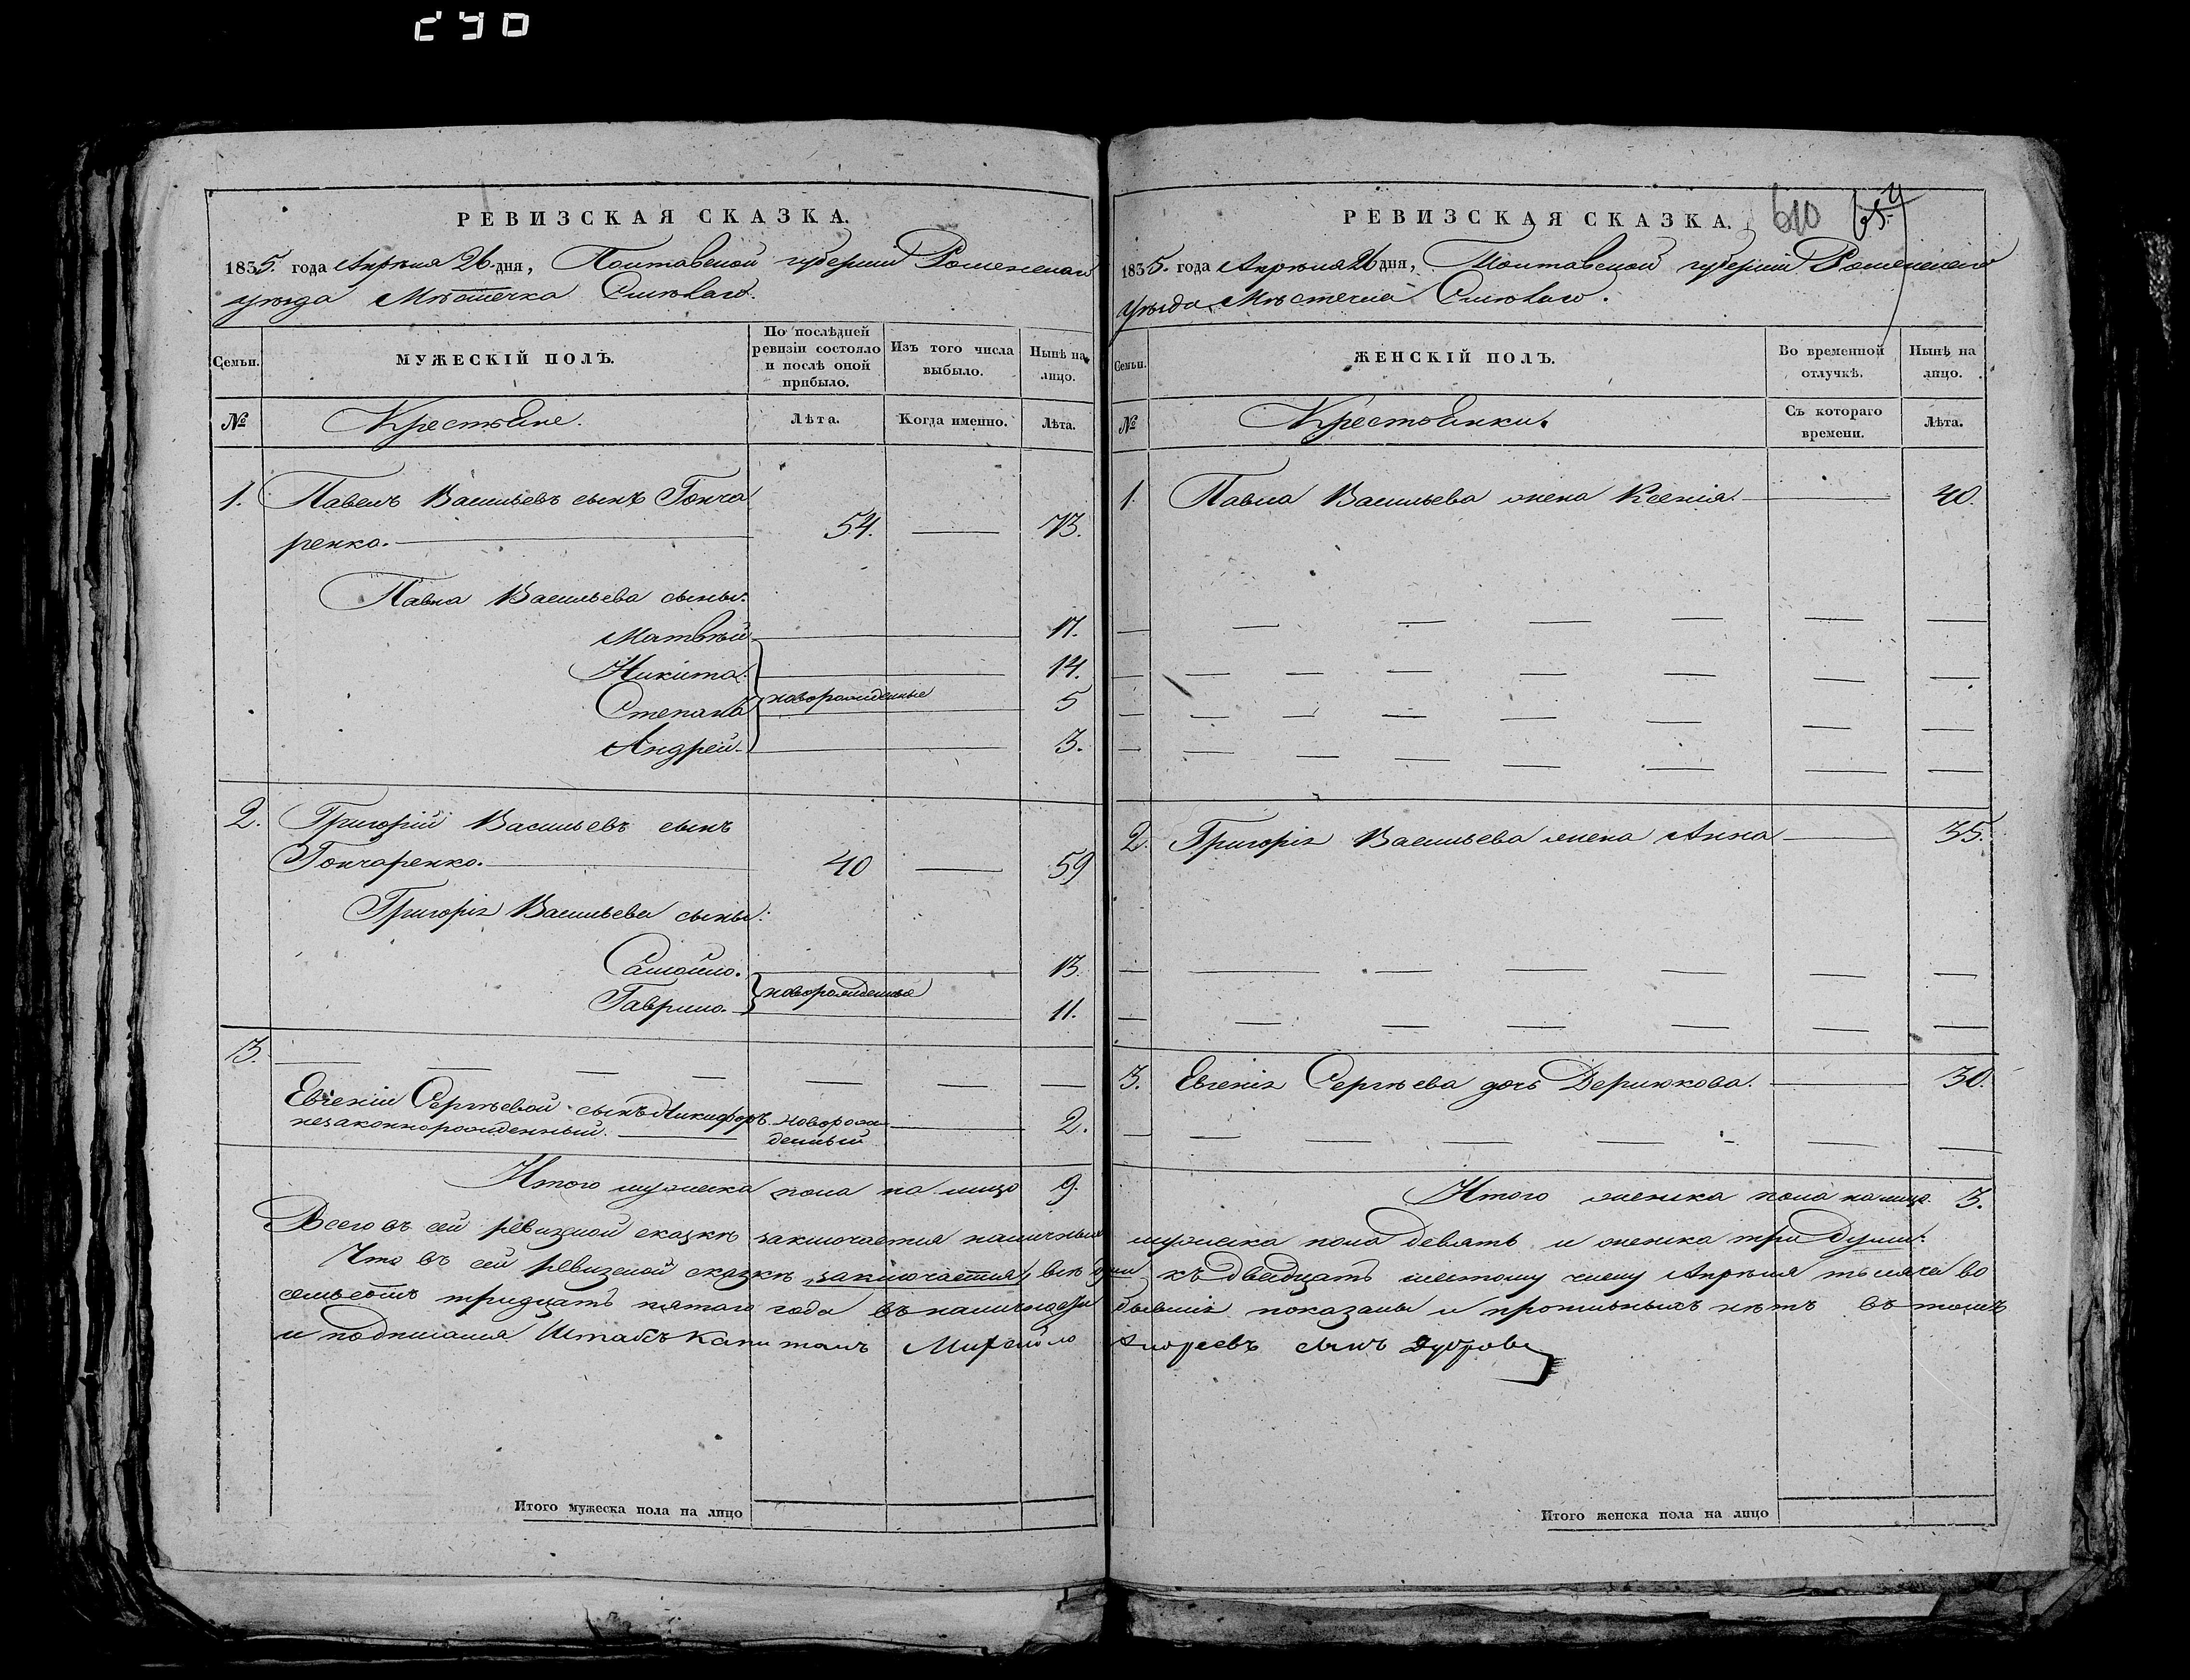 290
РЕВИЗСКАЯ СКАЗКА.
1835. года Апрѣля 26 дня, Полтавской губерніи Роменскаго
уѣзда Мѣстечка Смѣлаго.
Семьи.
МУЖЕСКІЙ ПОЛЪ.
По послѣдней ревизіи состояло и послѣ оной прибыло.
Изъ того числа выбыло.
Нынѣ на лицо.
№
Крестьяне.
Лѣта.
Когда именно.
Лѣта.
1. Павелъ Васильевъ сынъ Гонча
ренко. 54. 73.
Павла Васильева сыны:
Матвѣй 17.
Никита 14.
Степанъ новорожденные 5
Андрей. 3.
2. Григорій Васильевъ сынъ
Гончаренко. 40 59
Григорія Васильева сыны:
Самойло. 13.
Гаврило. новорожденные 11.
3.
Евгеніи Сергѣевой сынъ Никифоръ новорож 2.
незаконнорожденный. денный
Итого мужеска пола на лицо 9.
Всего въ сей ревизской сказкѣ заключается наличныхъ
Что въ сей ревизской сказкѣ заключается, всѣ
тридцать пятого года въ наличности
и подписался Штабсъ Капитанъ
Итого мужеска пола на лицо
РЕВИЗСКАЯ СКАЗКА.
610
1835. года Апрѣля 26 дня, Полтавской губерніи Роменскаго
уѣзда Мѣстечка Смѣлаго.
Семьи.
ЖЕНСКІЙ ПОЛЪ.
Во временной отлучкѣ.
Нынѣ на лицо.
№
Крестьянки.
Съ котораго времени.
Лѣта.
1. Павла Васильева жена Ксенія. 40.
2. Григорія Васильева жена Анна 35.
3. Евгенія Сергѣева дочь Дерюкова. 30.
Итого женска пола на лицо. 3.
мужеска пола девять и женска три души.
къ двадцать шестому числу Апрѣля тысяча во
показаны и нѣтъ въ томъ
Андреевъ сынъ
Итого женска пола на лицо